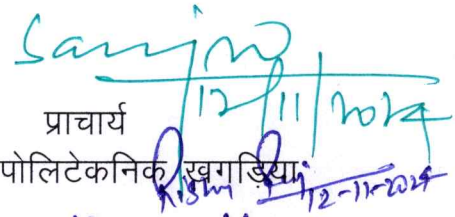 Sanjiv
12/11/2024
प्राचार्य
पोलिटेकनिक, खगड़िया
12-11-2024